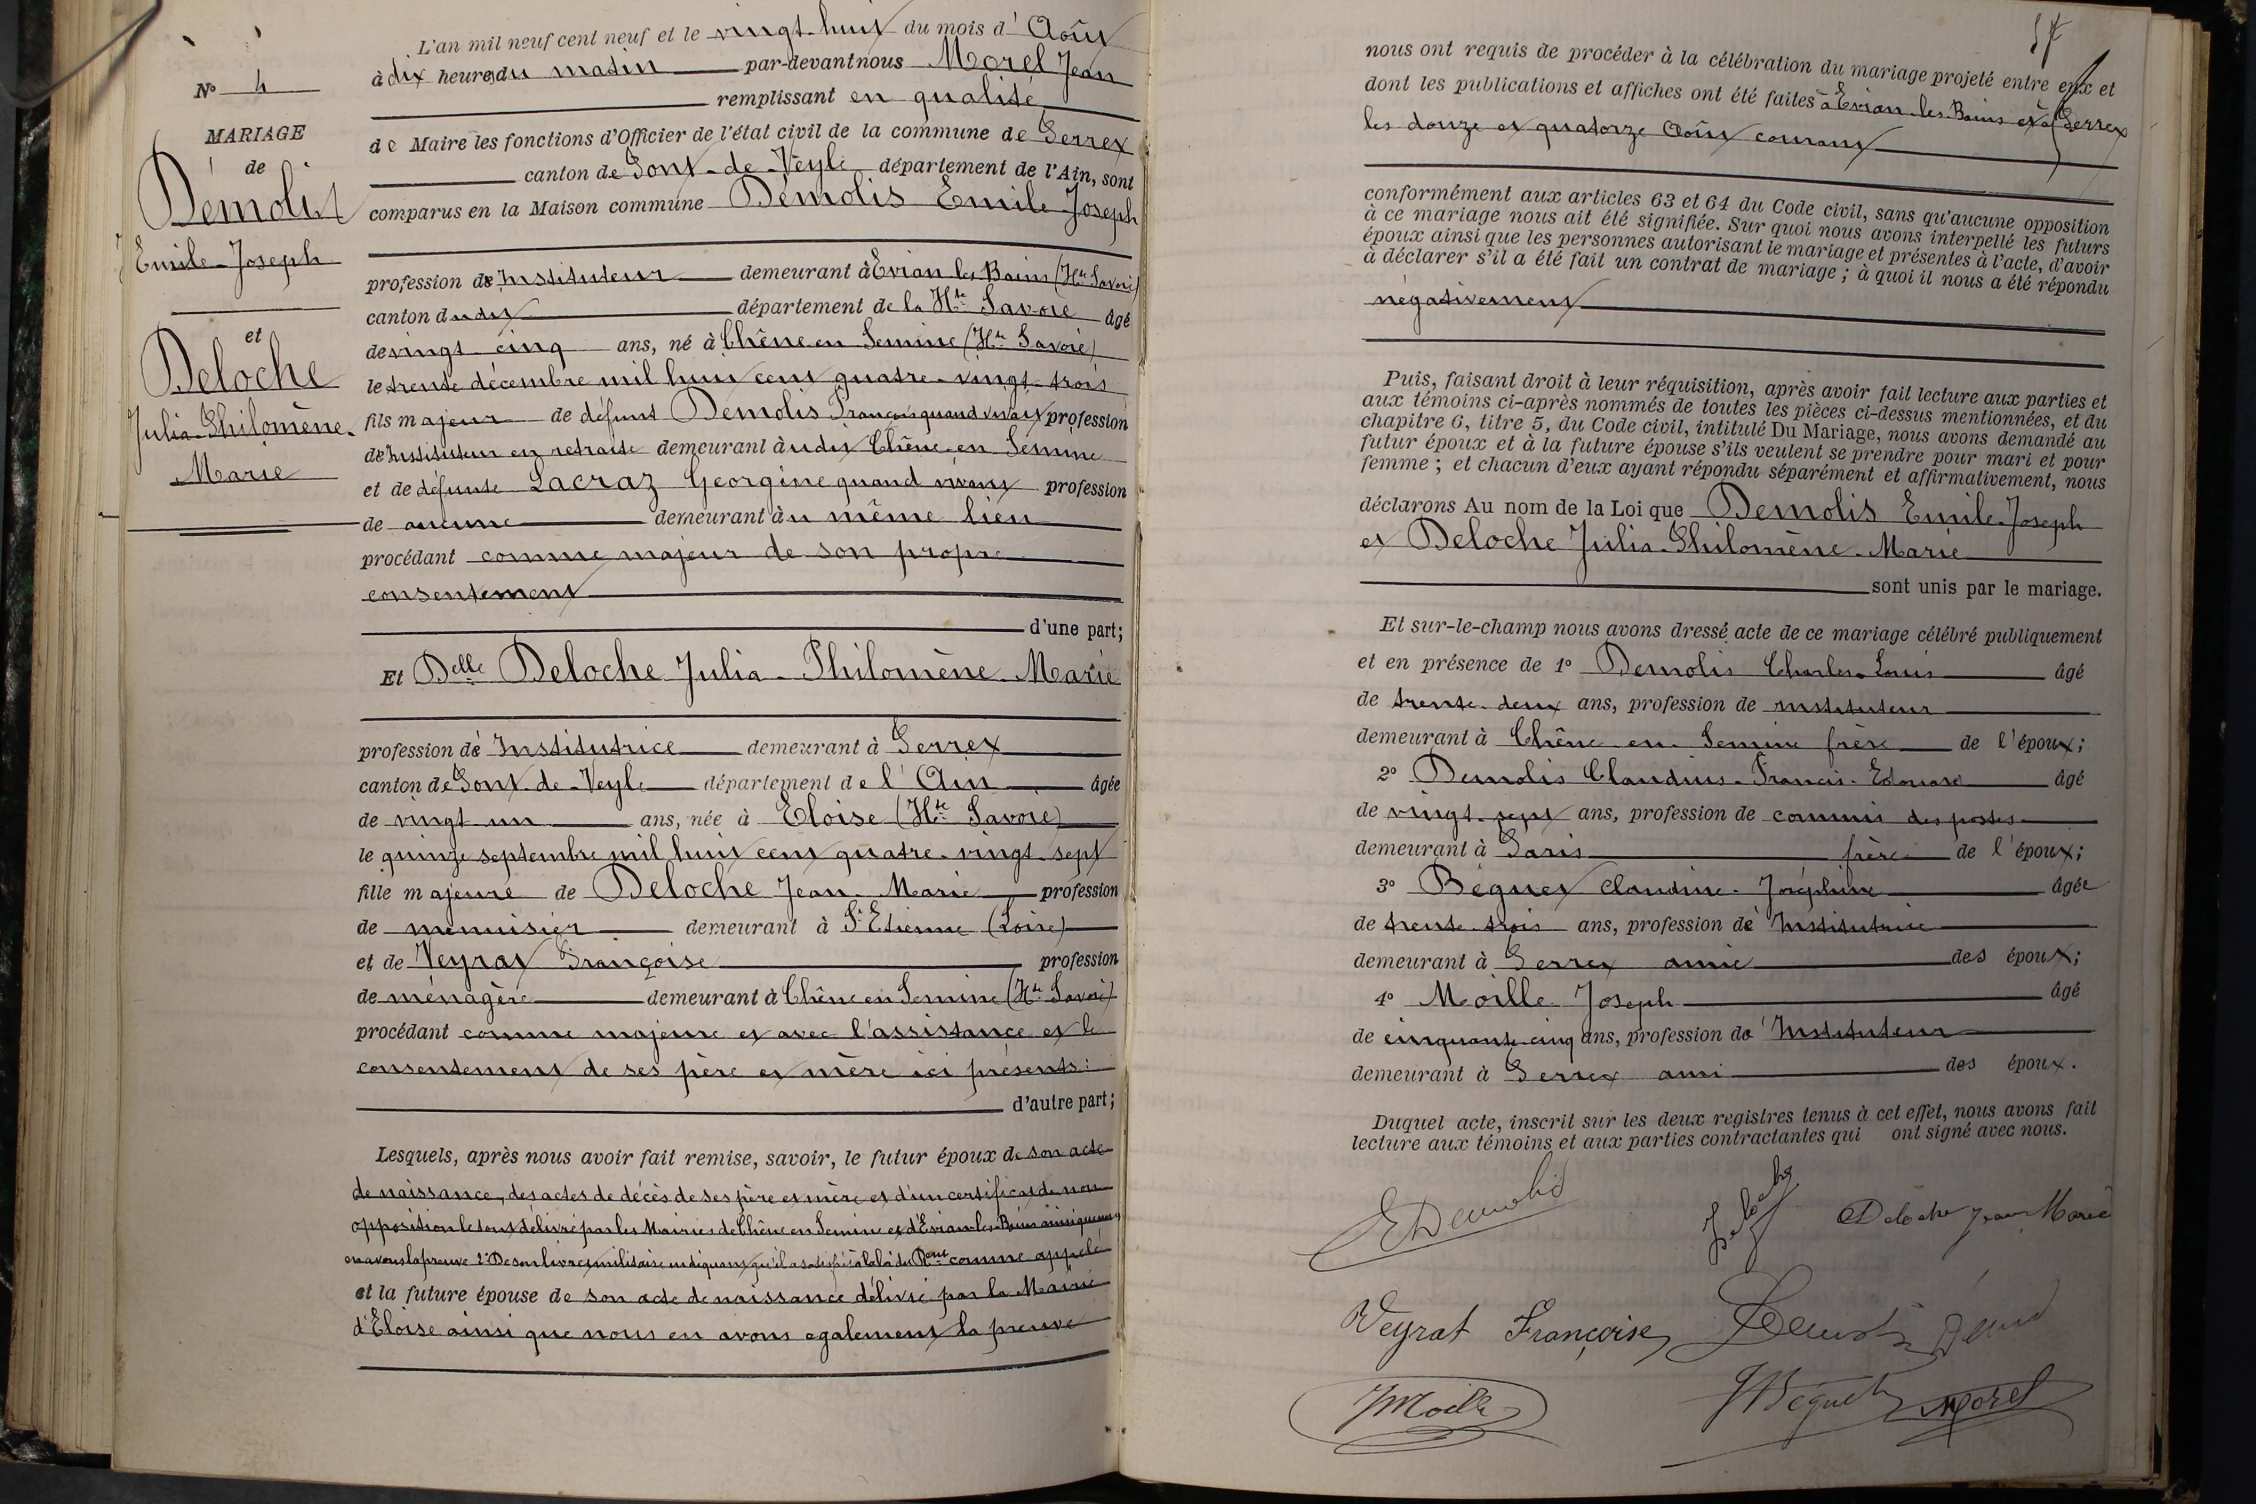 L'an mil neuf cent neuf et le vingt-huit du mois d'Août
à dix heures du matin par-devant nous Morel Jean
remplissant en qualité
de Maire les fonctions d'Officier de l'état civil de la commune de Perrex
canton de Pont-de-Veyle département de l'Ain, sont
comparus en la Maison commune Démolis Emile-Joseph
profession de Instituteur demeurant à Evian les Bains (Hte Savoie)
canton dudit département de la Hte Savoie âgé
de vingt cinq ans, né à Chêne en Semine (Hte Savoie)
le trente décembre mil huit cent quatre-vingt-trois
fils majeur de défunt Demolis François quand vivait profession
de Instituteur en retraite demeurant audit Chêne-en Semine
et de défunte Lacraz Georgine quand vivait profession
de aucune demeurant au même lieu
procédant comme majeur de son propre
consentement
d'une part;
Et Delle Deloche Julia-Philomène-Marie
profession de Institutrice demeurant à Perrex
canton de Pont-de-Veyle département de l'Ain âgée
de vingt un ans, née à Eloise (Hte Savoie)
le quinze septembre mil huit cent quatre-vingt-sept
fille majeure de Deloche Jean-Marie profession
de menuisier demeurant à St Etienne (Loire)
et de Veyrat Françoise profession
de ménagère demeurant à Chêne en Semine (Hte Savoie)
procédant comme majeure et avec l'assistance et le
consentement de ses père et mère ici présents:
d'autre part;
Lesquels, après nous avoir fait remise, savoir, le futur époux de son acte
de naissance, des actes de décès de ses père et mère et d'un certificat de non
opposition le tout délivré par les Mairies de Chêne en Semine et d'Evian-les-Bains ainsi que nous
en avons la preuve 2° De son livret militaire indiquant qu'il a satisfait à la loi du Remt comme appelé
et la future épouse de son acte de naissance délivré par la Mairie
d'Eloise ainsi que nous en avons également la preuve
No 4
MARIAGE
de
Démolis
Emile-Joseph
et
Deloche
Julia-Philomène-
Marie
57
nous ont requis de procéder à la célébration du mariage projeté entre eux et
dont les publications et affiches ont été faites à Evian-les-Bains et à Perrex
les douze et quatorze Août courant
conformément aux articles 63 et 64 du Code civil, sans qu'aucune opposition
à ce mariage nous ait été signifiée. Sur quoi nous avons interpellé les futurs
époux ainsi que les personnes autorisant le mariage et présentes à l'acte, d'avoir
à déclarer s'il a été fait un contrat de mariage; à quoi il nous a été répondu
négativement
Puis, faisant droit à leur réquisition, après avoir fait lecture aux parties et
aux témoins ci-après nommés de toutes les pièces ci-dessus mentionnées, et du
chapitre 6, titre 5, du Code civil, intitulé Du Mariage, nous avons demandé au
futur époux et à la future épouse s'ils veulent se prendre pour mari et pour
femme; et chacun d'eux ayant répondu séparément et affirmativement, nous
déclarons Au nom de la Loi que Demolis Emile-Joseph
et Deloche Julia-Philomène-Marie
sont unis par le mariage.
Et sur-le-champ nous avons dressé acte de ce mariage célébré publiquement
et en présence de 1° Demolis Charles-Louis âgé
de trente-deux ans, profession de instituteur
demeurant à Chêne-en-Semine frère de l'époux;
2° Demolis Claudius-Francis-Edouard âgé
de vingt-sept ans, profession de commis des postes
demeurant à Paris frère de l'époux;
3° Béguet Claudine-Joséphine âgée
de trente-trois ans, profession de Institutrice
demeurant à Perrex amie des époux;
4° Moille Joseph âgé
de cinquante-cinq ans, profession de Instituteur
demeurant à Perrex ami des époux.
Duquel acte, inscrit sur les deux registres tenus à cet effet, nous avons fait
lecture aux témoins et aux parties contractantes qui ont signé avec nous.
EDemolis Deloche Jean Marie
Veyrat Françoise Demolis
JMoille JBéguet Morel